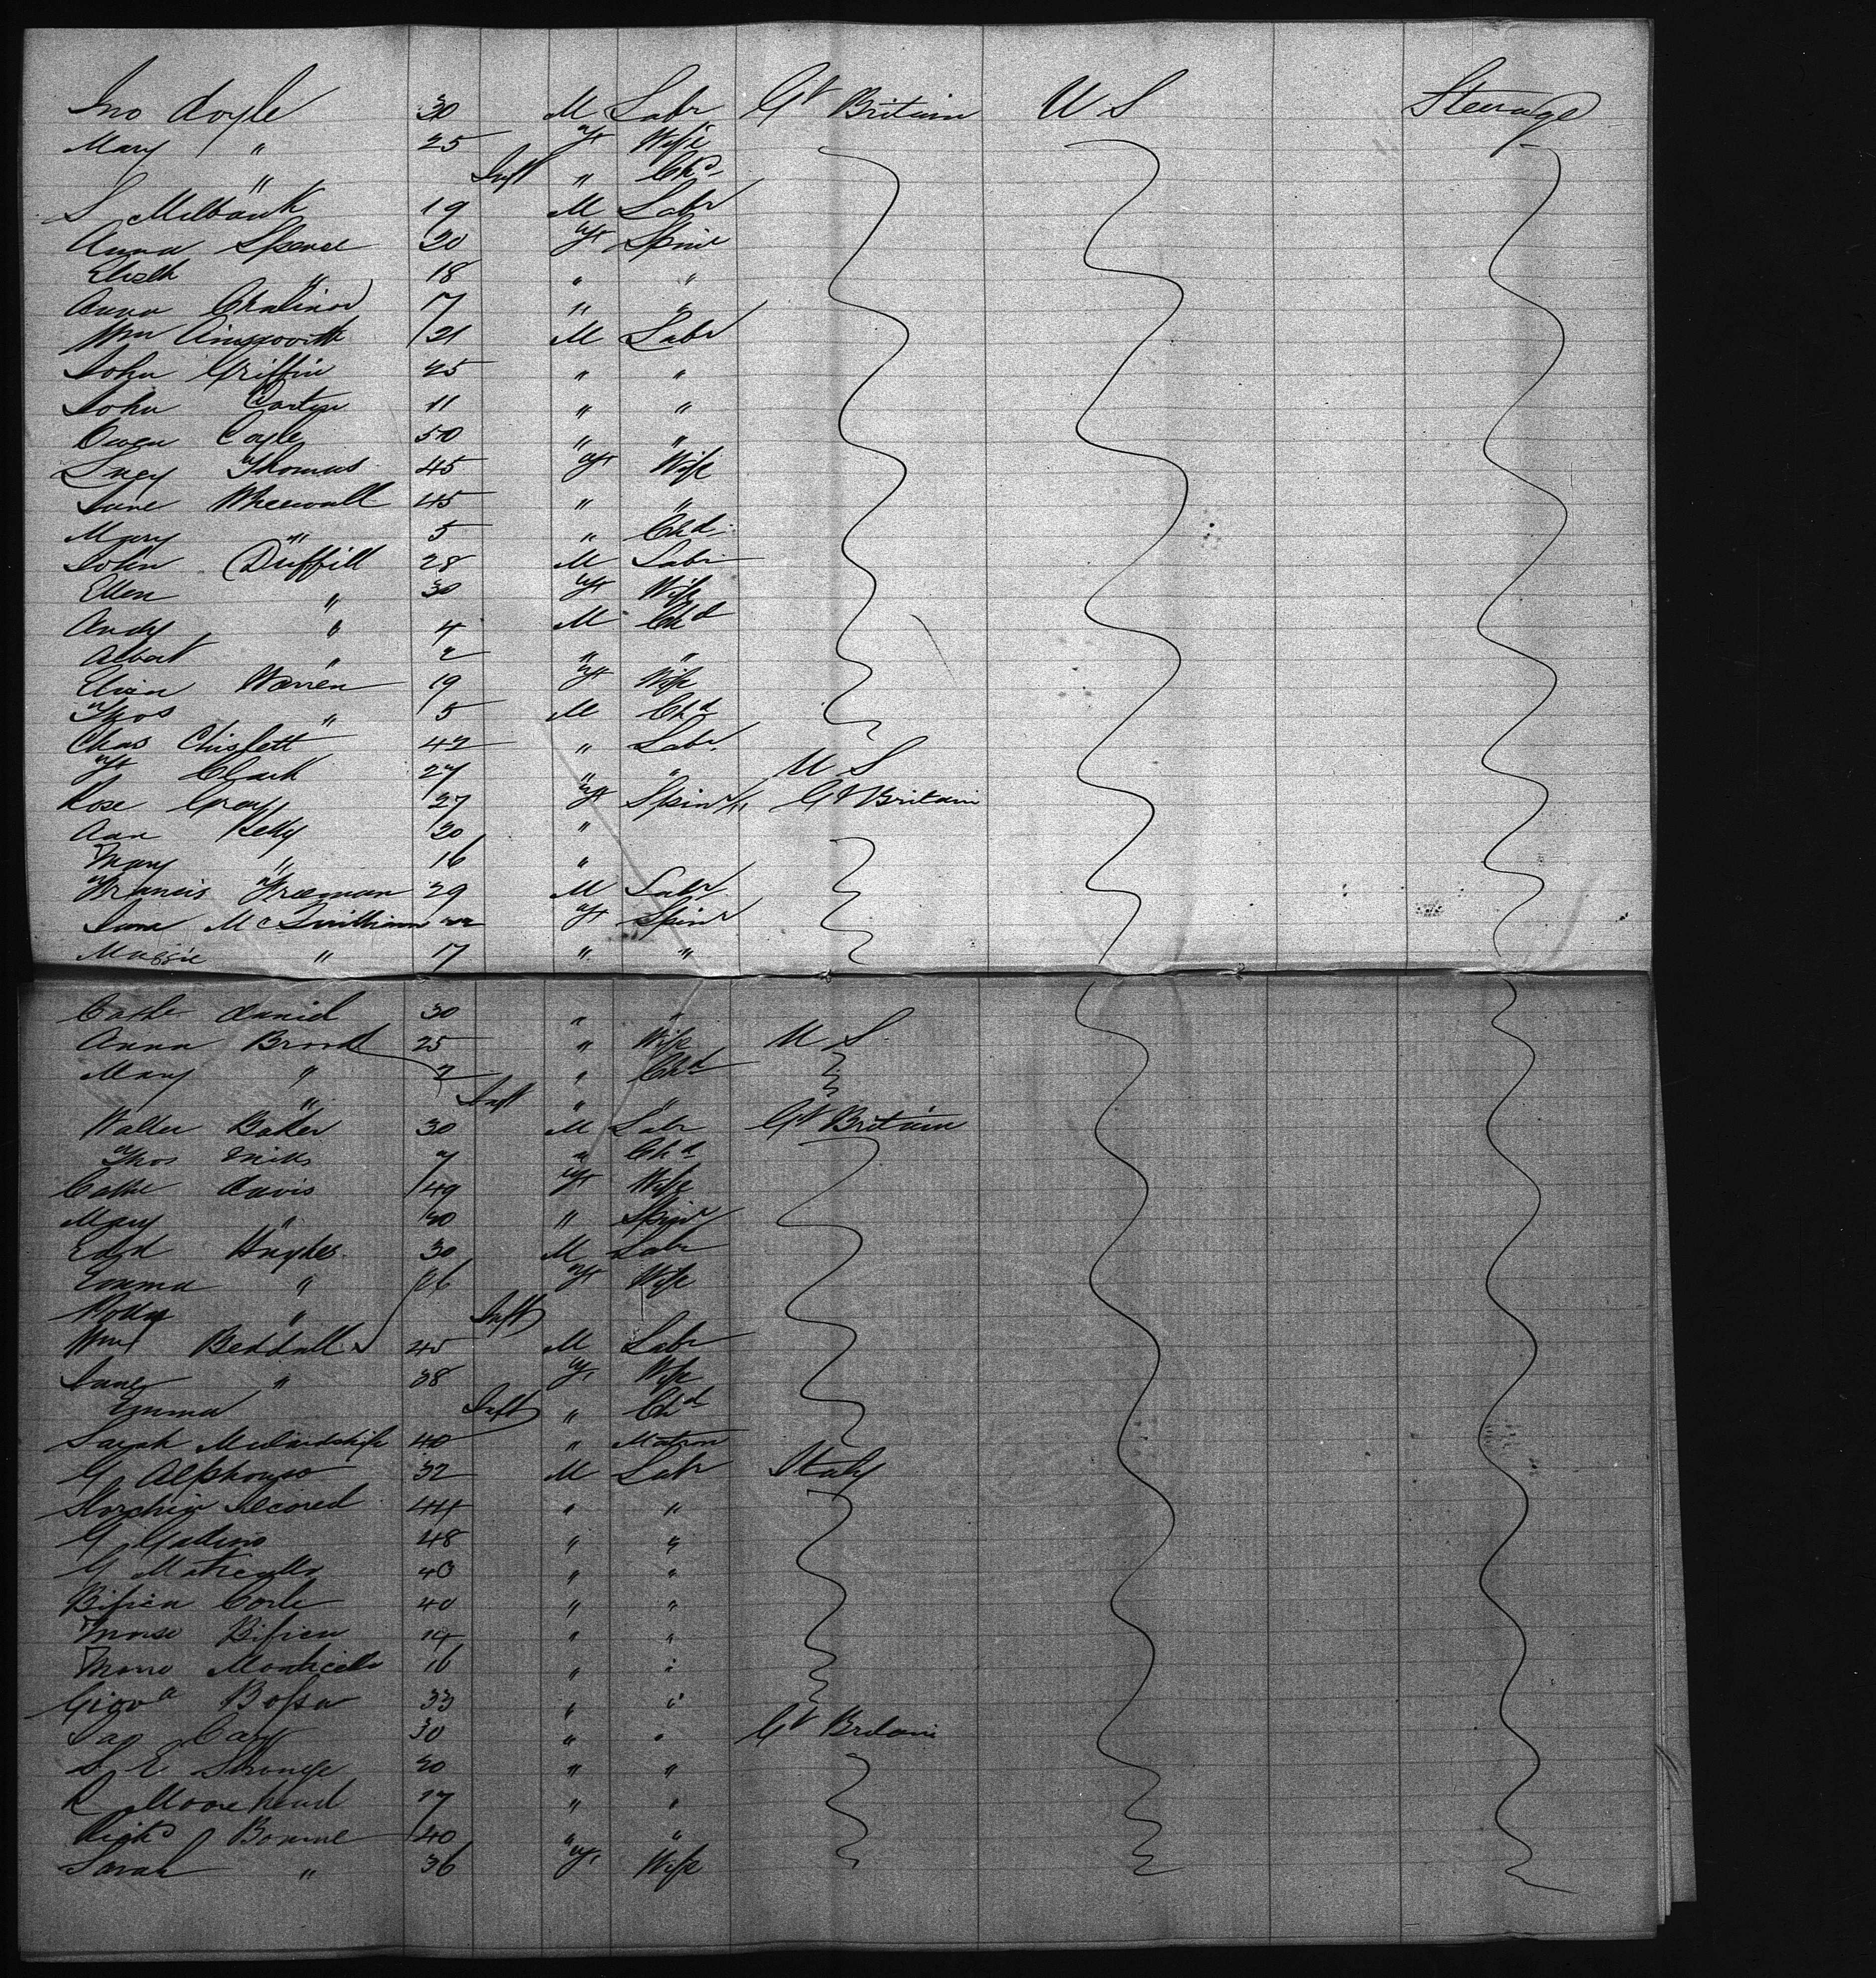 Jno Doyle 30 M Labr Gt Britain U S Steerage
Mary " 25 F Wife
" Inft " Chd
S Milbank 19 M Labr
Anna Spence 20 F Spinr
Elizth " 18 " "
Anna Chalinor 17 " "
Wm Ainsworth 21 M Labr
John Griffin 25 " "
John 11 " "
Owen Coyle 50 " "
Lucy Thomas 45 F Wife
Jane Wheewall 45 " "
Mary " 5 " Chd
John Duffill 28 M Labr
Ellen " 30 F Wife
Andy " 4 M Chd
Albert " 2 " "
Eliza Warren 19 F Wife
Thos " 5 M Chd
Chas Chislett 42 " Labr
F Clark 27 " " U S
Rose Gray 27 F Spinr Gt Britain
Ann Kelly 20 "
Mary " 16 "
Francis Freeman 29 M Labr
Jane F Spinr
Maggie " 17 " "
Cathe Daniel 30 " "
Anna Brood 25 " Wife U S
Mary " 2 " Chd
" Inft " "
Walter Baker 30 M Labr Gt Britain
Thos Mills 7 " Chd
Cathe Davis 49 F Wife
Mary " 20 " Spinr
Edd Hughes 30 M Labr
Emma " 26 F Wife
" Inft
Wm Beddall 45 M Labr
Jane " 38 F Wife
Emma Inft " Chd
Sarah 40 " Matron
G Alphonso 32 M Labr Italy
44 " "
G Gallino 48 " "
G 40 " "
Bifien Carle 40 " "
Bifien 14 " "
Monticello 16 " "
Giova Bossa 33 " "
Jas Carr 30 " " Gt Britain
S E Strange 20 " "
R Moorehead 27 " "
Richd Bonnie 40 " "
Sarah " 36 F Wife